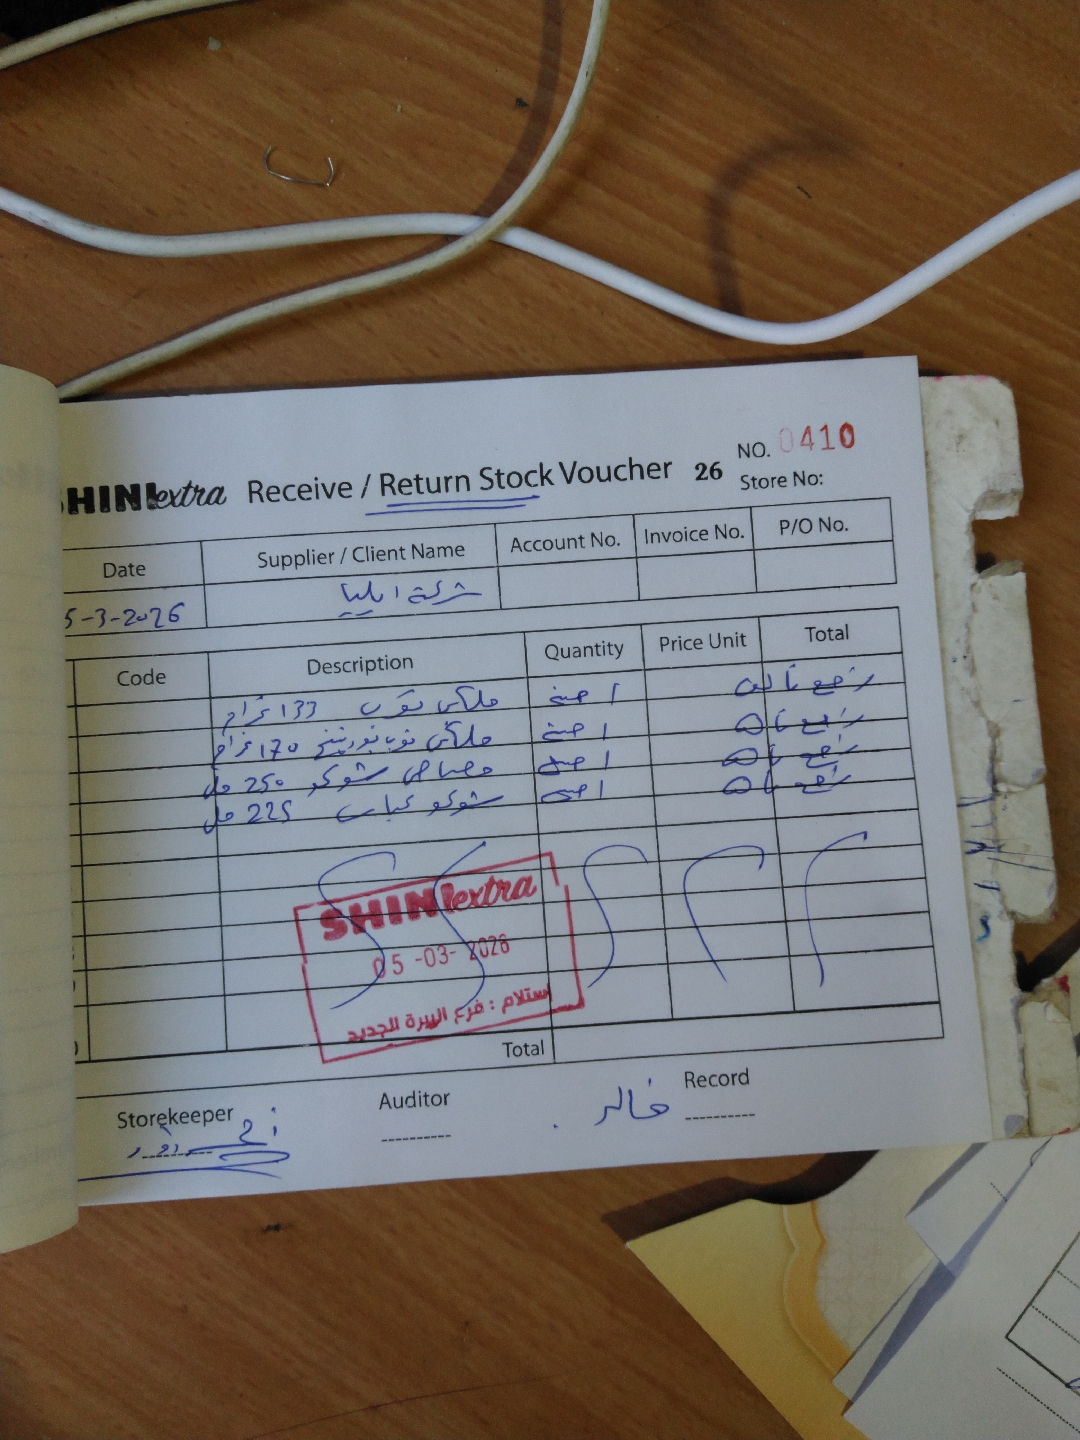 SHINI extra Receive / Return Stock Voucher 26
NO. 0410
Store No:
Date Supplier / Client Name Account No. Invoice No. P/O No.
5-3-2026 شركة ايليا
Code Description Quantity Price Unit Total
ملتي كوب 133 غرام 1 صند راجع تالف
ملتي 170 غرام 1 صند راجع تالف
مصاص شوكو 250 مل 1 صند راجع تالف
شوكو 225 مل 1 صند راجع تالف
SHINI extra
05-03-2026
استلام : فرع البيرة الجديد
Total
Storekeeper Auditor Record
خالد